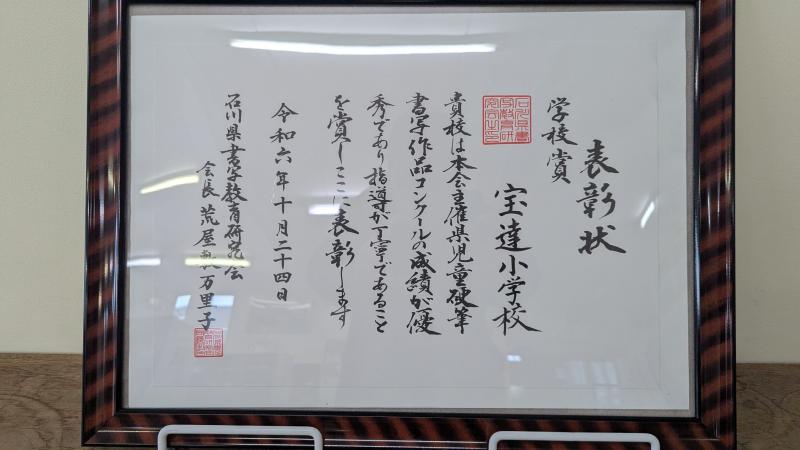 表彰状
学校賞
宝達小学校
貴校は本会主催県児童硬筆
書写作品コンクールの成績が優
秀であり指導が丁寧であること
を賞しここに表彰します
令和六年十月二十四日
石川県書写教育研究会
会長 荒屋 万里子